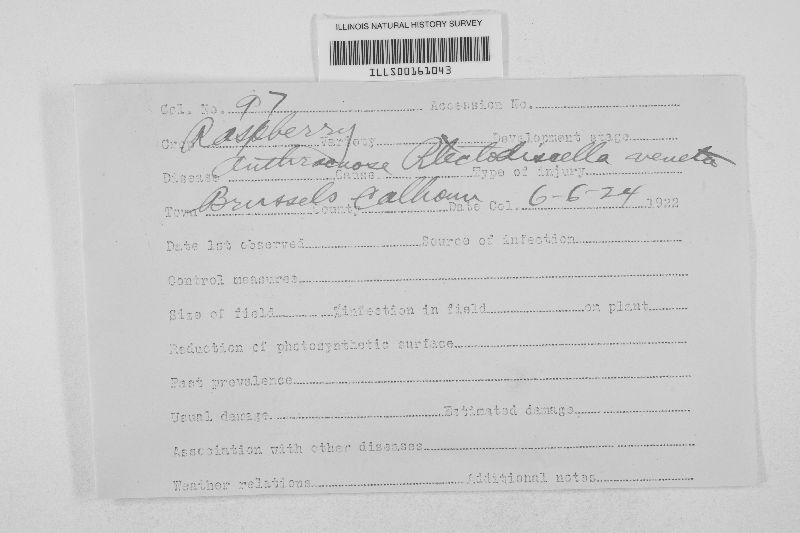 ILLINOIS NATURAL HISTORY SURVEY
ILLS00161043
Col. No. 97 Accession No.
Crop Raspberry Variety Development stage
Disease Anthracnose Cause Plectodiscella veneta Type of injury
Town Brussels County Calhoun Date Col. 6-6-24 1922
Date 1st observed Source of infection
Control measures
Size of field %infection in field on plant
Reduction of photosynthetic surface
Past prevalence
Usual damage Estimated damage
Association with other diseases
Weather relations Additional notes